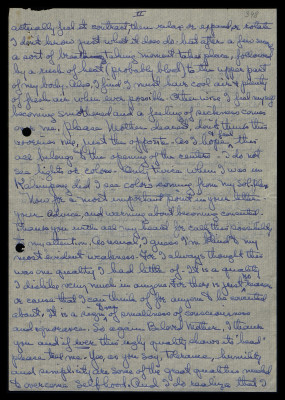 II
actually feel it contract, then relax or expand or rotate
I don't know just what it does do, but after a few sec.
a sort of breathtaking moment takes place, followed
by a rush of heat (probably blood) to the upper part
of my body. Also, I find I must have cool air & plenty
of fresh air when ever possible. Otherwise I feel myself
becoming smothered and a feeling of sickness comes
me. Please Mother dearest, don't think this
worries me, just the opposite. As I hope this
all belongs to the opening of the center. I do not
see lights or colors. Only once when I was in
did I see colors coming from my Solarplex
Now for a most important point in your letter
your advice and warning about becoming conceited.
thank you with all my heart for calling this possibility
to my attention. As usual, I guess I'm blind to my
most evident weakness. For I always thought this
was one quality I had little of. It is a quality
I dislike very much in anyone for there is just no reason
or cause that I can think of for anyone to be conceited
about. It is a sign of smallness of consciousness
and ignorance. So again Beloved Mother, I thank
you and if ever this ugly quality shows its head
please tell me. Yes, as you say, Tolerance, humility
and simplicity are some of the great qualities needed
to overcome Selfhood. And I do realize that I